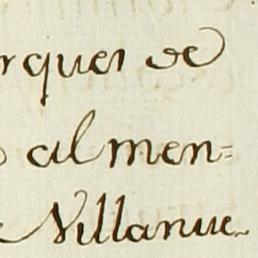 rques de
almen=
Villanue-